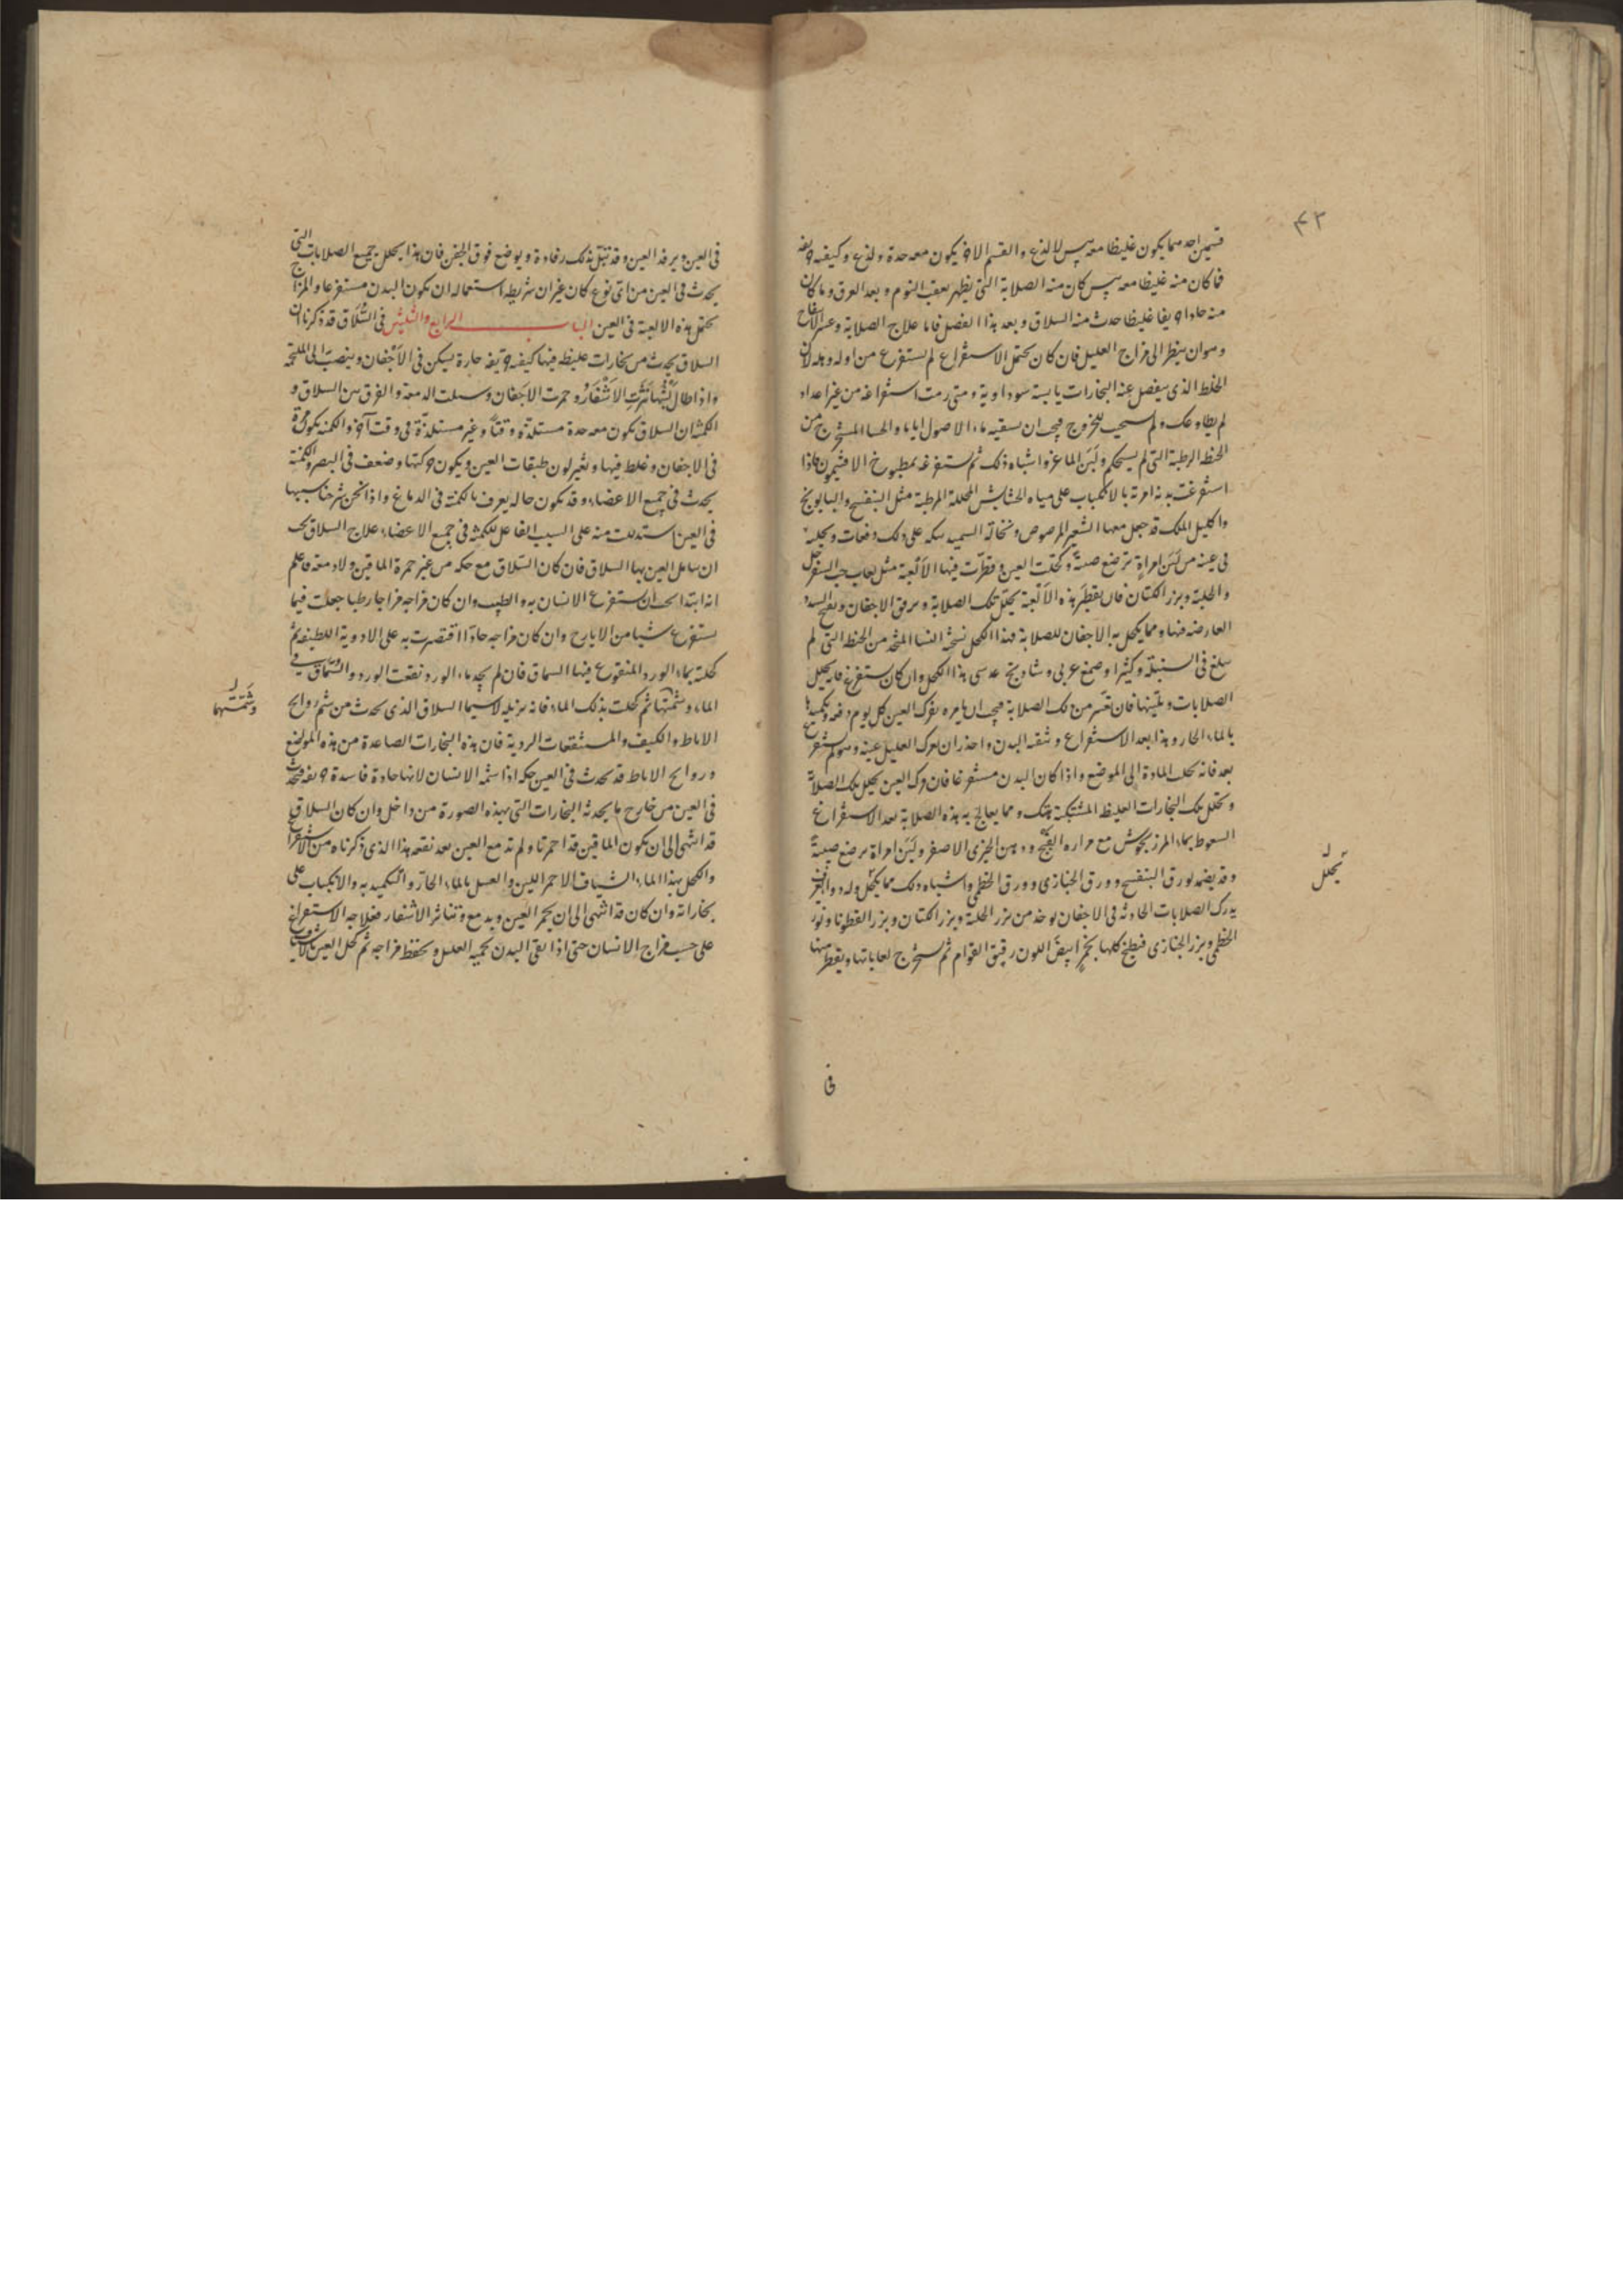 ٤٣
قسمين احدهما يكون غليظا معه يبس لا لذع والقسم الاخر يكون معه حدة ولذع وكيفيه حريفه
فما كان منه غليظا معه يبس كان منه الصلابة التي يظهر بعقب النوم وبعد العرق وما كان
منه حادا حريفا غليظا حدث منه السلاق وبعد هذا الفصل فاما علاج الصلابة وعسر الانفتاح
وهو ان ينظر الى مزاج العليل فان كان يحتمل الاستفراغ لم يستفرغ من اوله وهله لان
الخلط الذي ينفصل عنه البخارات يابسة سوداوية ومتى رمت استفراغه من غير اعداد
لم يطاوعك ولم يستجب للخروج فيجب ان يسقيه ماء الاصول اياما والحسا المستخرج من
الحنطة الرطبة التي لم يستحكم ولبن الماعز واشباه ذلك ثم يستفرغه بمطبوخ الافتيمون فاذا
استفرغت بدنه امرته بالانكباب على مياه الحشايش المحللة المرطبة مثل البنفسج والبابونج
واكليل الملك قد جعل معها الشعير المرضوض ونخالة السميد على ذلك دفعات ويحلب
في عينه من لبن امراة ترضع صبية وكحلت العين وقطرت فيها الالعبة مثل لعاب حب السفرجل
والحلبة وبزر الكتان فان تقطير هذه الالعبة يحلل تلك الصلابة ويرقق الاجفان ويفتح السدد
العارضه فيها ومما يكحل به الاجفان للصلابة فهذا الكحل نسخته النشا المتخذ من الحنطة التي لم
تبلغ في السنبلة وكثيرا وصمغ عربي وشاذنج عدسي هذا الكحل وان كان يستفرغ فانه يحلل
الصلابات ويلينها فان تغير من تلك الصلابة فيجب ان يامره بفرك العين كل يوم دفعه وتكميدها
بالماء الحار وهذا بعد الاستفراغ وتنقيه البدن واحذر ان يفرك العليل عينه وهو لم يستفرغ
بعد فانه يجلب المادة الى الموضع واذا كان البدن مستفرغا فان فرك العين يحلل تلك الصلابة
وتحلل تلك البخارات الغليظة المشتبكة بتلك ومما يعالج به هذه الصلابة بعد الاستفراغ
السعوط بماء المرزنجوش مع مرارة القبج ودهن الخيري الاصفر ولبن امراة ترضع صبية
وقد يضمد بورق البنفسج وورق الخبازى وورق الخطمي واشباه ذلك مما يحلل وله دواء
يدرك الصلابات الحادثه في الاجفان يوخذ من بزر الحلبة وبزر الكتان وبزر القطونا وبزر
الخطمي وبزر الخبازى فيطبخ كلها بخمر ابيض اللون رقيق القوام ثم يستخرج لعاباتها ويقطر منها
يحلل
في
في العين ويرفد العين وقد تبل بذلك رفادة ويوضع فوق الجفن فان هذا يحلل جميع الصلابات التي
يحدث في العين من اي نوع كان غير ان شريطه استعماله ان يكون البدن مستفرغا والمزاج
يحتمل هذه الالعبة في العين الباب الرابع والثلثين في السلاق قد ذكرنا ان
السلاق يحدث من بخارات غليظه فيها كيفيه حريفه حارة يسكن في الاجفان وينصب الى الملتحمة
واذا طال لبثها نثرت الاشفار وحمرت الاجفان وسيلت الدمعة والفرق بين السلاق و
الكمنة ان السلاق يكون معه حدة مستلذة وقتا وغير مستلذة في وقت آخر والكمنة يكون حمرة
في الاجفان وغلظ فيها وتغير لون طبقات العين ويكون حركتها وضعف في البصر والكمنة
يحدث في جميع الاعضاء وقد يكون حاله يعرف بالكمنة في الدماغ واذا نحن شرحنا سببها
في العين استدللت منه على السبب الفاعل للكمنة في جميع الاعضاء علاج السلاق يجب
ان يتامل العين بها السلاق فان كان السلاق مع حكه من غير حمرة الماقين ولا دمعة فاعلم
انه ابتدا يجب ان يستفرغ الانسان به والطبيب وان كان مزاجه مزاجا رطبا جعلت فيما
يستفرغ شيا من الايارج وان كان مزاجه حادا اقتصرت به على الادوية اللطيفه ثم
كحلته بماء الورد المنقوع فيها السماق فان لم يجد ماء الورد نقعت الورد والسماق في
الماء وشمتها ثم كحلت بذلك الماء فانه يزيله لاسيما السلاق الذي يحدث من شم روايح
الاباط والكنيف والمستنقعات الردية فان هذه البخارات الصاعدة من هذه المواضع
وروايح الاباط قد يحدث في العين حكه اذا شمه الانسان لانها حادة فاسدة حريفه فتحدث
في العين من خارج ما يحدثه البخارات التي بهذه الصورة من داخل وان كان السلاق
قد انتهى الى ان يكون الماقين قد احمرتا ولم تدمع العين بعد نفعه هذا الذي ذكرناه من الاستفراغ
والكحل بهذا الماء الشياف الاحمر اللين والغسل بالماء الحار والتكميد به والانكباب على
بخاراته وان كان قد انتهى الى ان يحمر العين ويدمع وتتناثر الاشفار فعلاجه الاستفراغ
على حسب مزاج الانسان حتى اذا انقى البدن بحميه العليل وتحفظ مزاجه ثم كحل العين بالاشياف
وشمتها